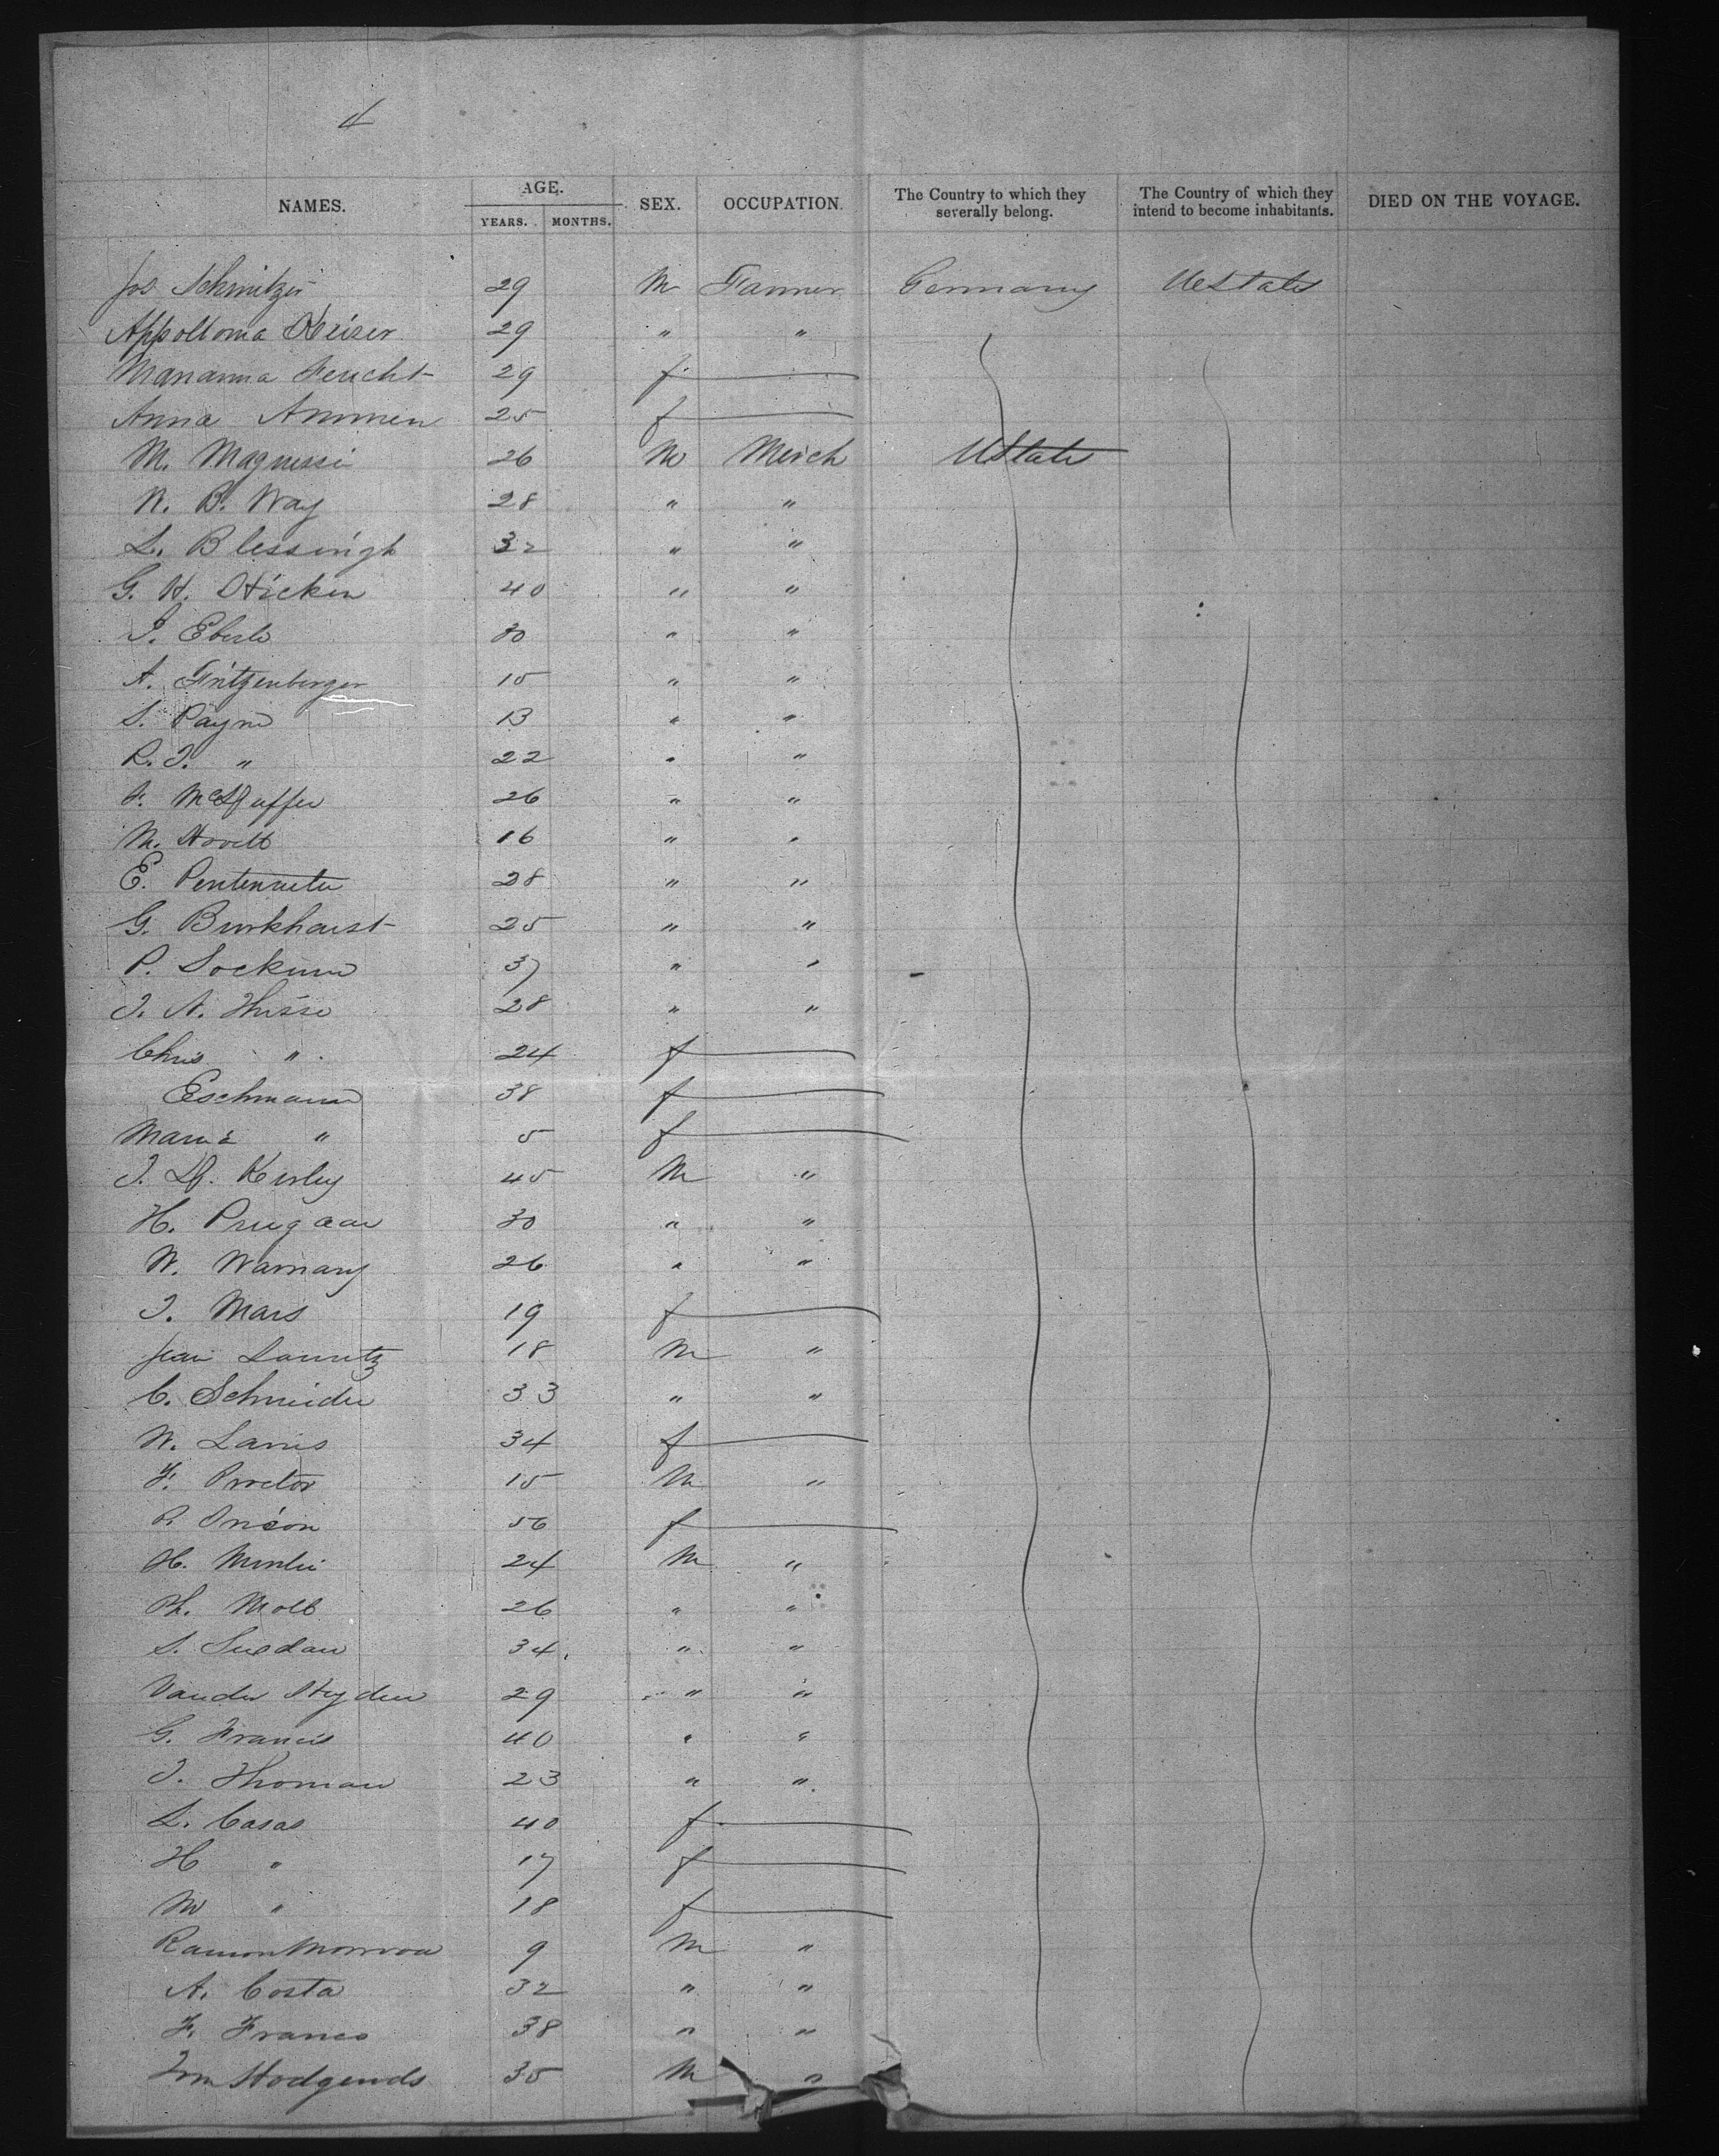 4
NAMES. AGE. YEARS. MONTHS. SEX. OCCUPATION. The Country to which they severally belong. The Country of which they intend to become inhabitants. DIED ON THE VOYAGE.
Jos Schmitzer 29 M Farmer Germany UStates
Appollonia Keiser 29 " "
Marianna Feucht 29 f
Anna Ammen 25 f
M. Magnessi 26 M Merch UStates
N. B. Way 28 " "
L. Blessingh 32 " "
G. H. Hicken 40 " "
J. Eberle 30 " "
A. Fritzenberger 15 " "
S. Payne 13 " "
R. J. " 22 " "
26 " "
M. 16 " "
E. Pentenrieter 28 " "
G. Burkhaust 25 " "
P. Lockum 37 " "
J. A. Hisse 28 " "
Chris " 24 f
Eschmann 38 f
Maria " 5 f
J. D. Kerley 45 M "
H. Prugaar 30 " "
W. Warnany 26 " "
J. Mars 19 f
Jean Lauretz 18 M "
C. Schneider 33 " "
W. Lanis 34 f
F. Proctor 15 M "
56 f
H. 24 M "
Ph. Molt 26 " "
S. 34 " "
Vander Heyden 29 " "
G. Francis 40 " "
J. Thoman 23 " "
L. Casas 40 f
H " 17 f
M " 18 f
Ramon 9 M "
A. Costa 32 " "
F. Franco 38 " "
Hodgends 35 M "